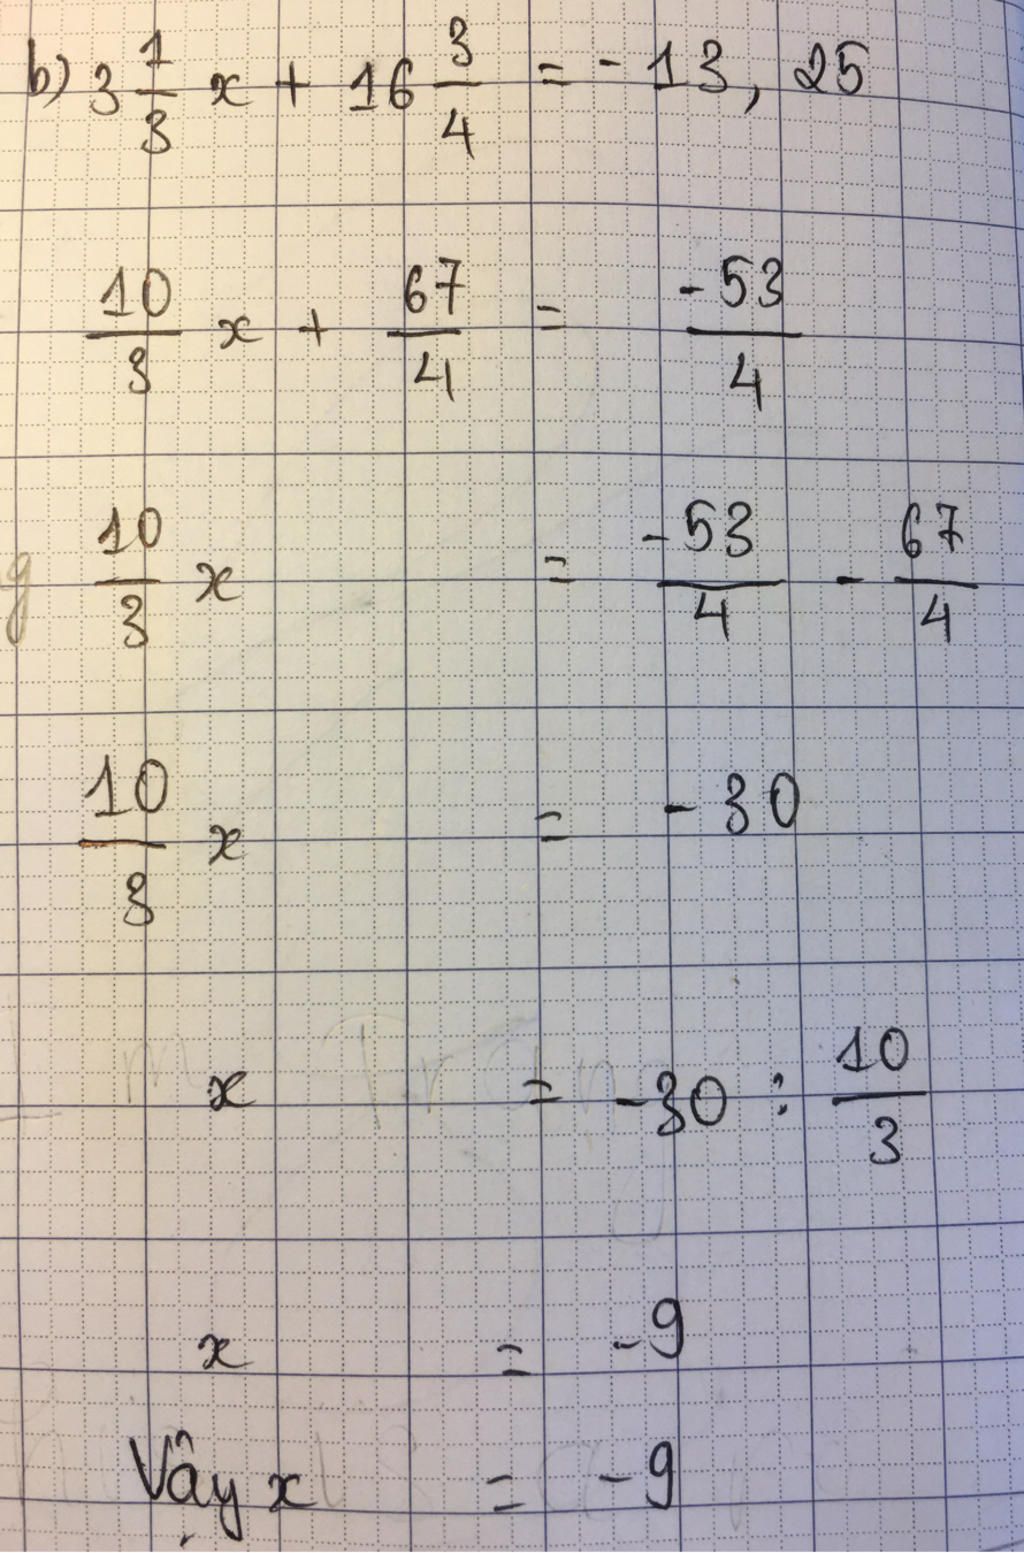 b) 3 1/3 x + 16 3/4 = -13,25
10/3 x + 67/4 = -53/4
10/3 x = -53/4 - 67/4
10/3 x = -30
x = -30 : 10/3
x = -9
Vậy x = -9